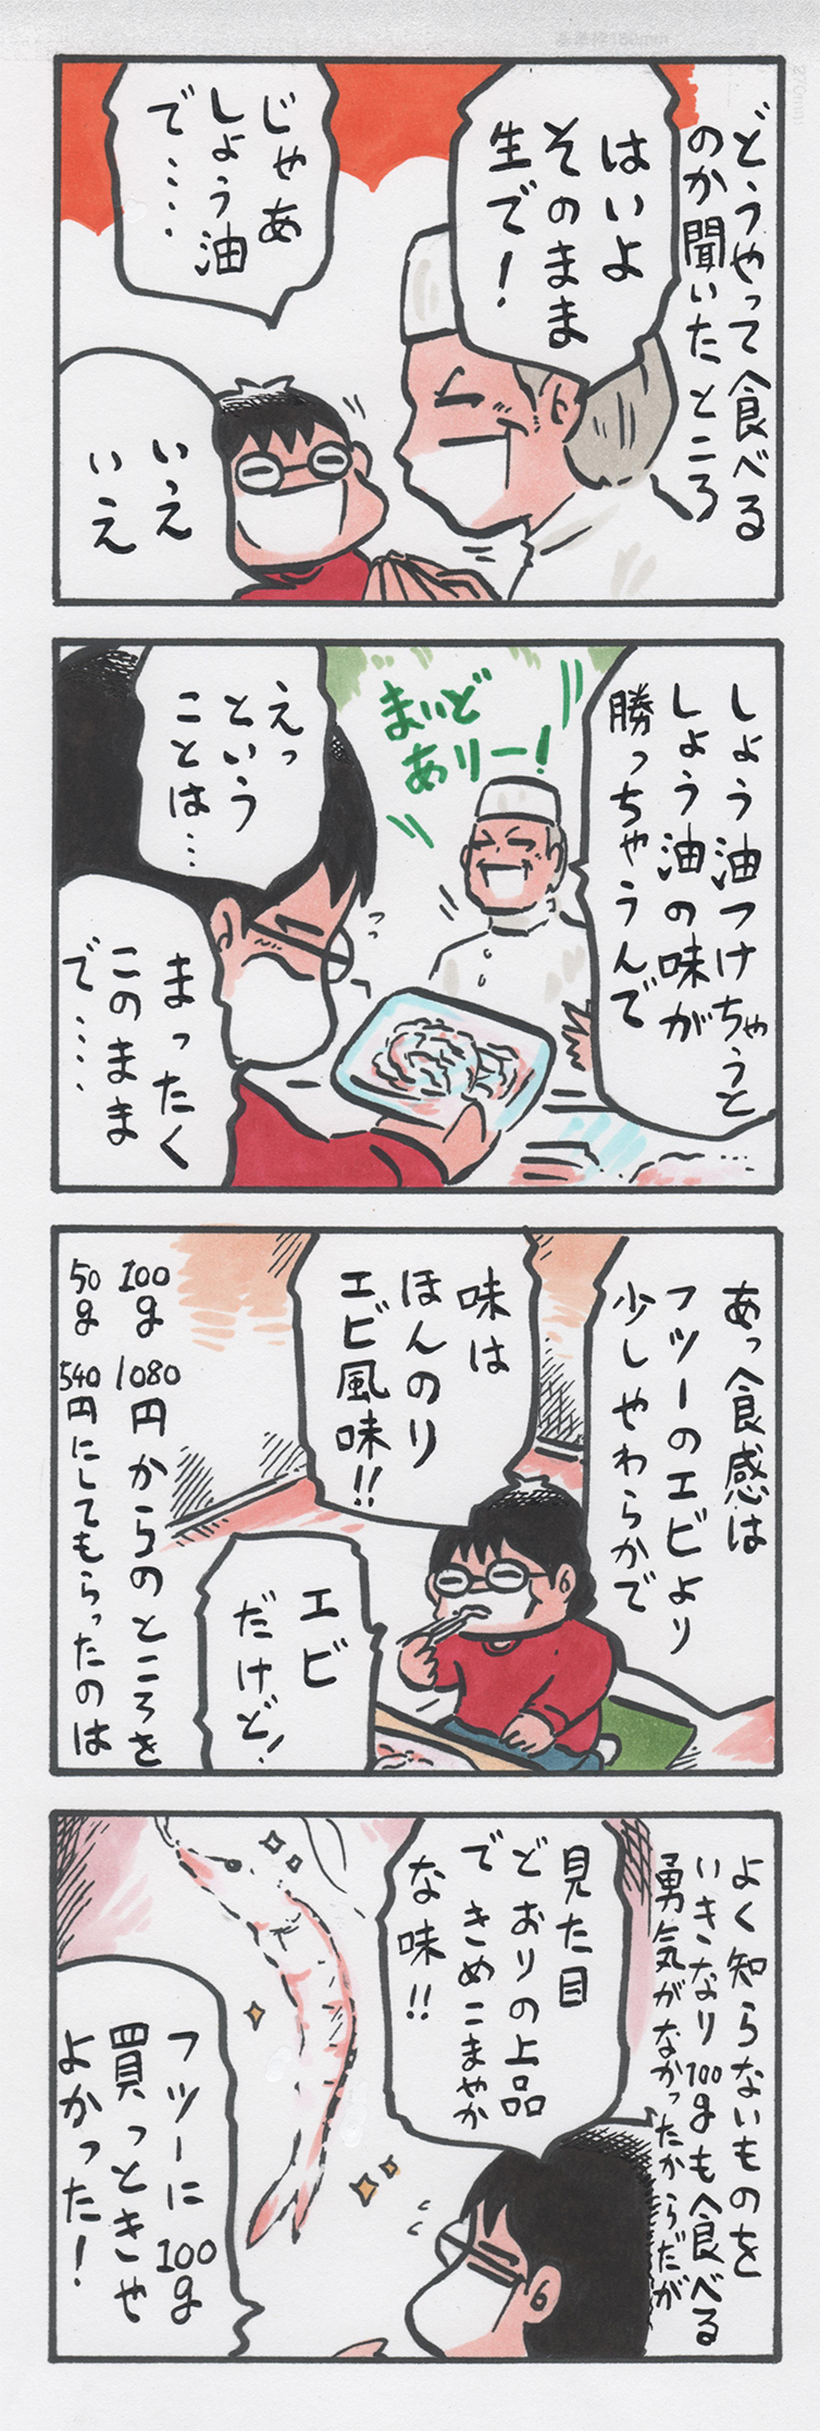 どうやって食べる
のか聞いたところ
はいよ
そのまま
生で!
じゃあ
しょう油
で‥‥
いえ
いえ
しょう油つけちゃうと
しょう油の味が
勝っちゃうんで
まいど
ありー!
えっ
という
ことは…
まったく
このまま
で‥‥
あっ食感は
フツーのエビより
少しやわらかで
味は
ほんのり
エビ風味!!
エビ
だけど!
100g 1080円からのところを
50g 540円にしてもらったのは
よく知らないものを
いきなり100gも食べる
勇気がなかったからだが
見た目
どおりの上品
できめこまやか
な味!!
フツーに100g
買っときゃ
よかった!